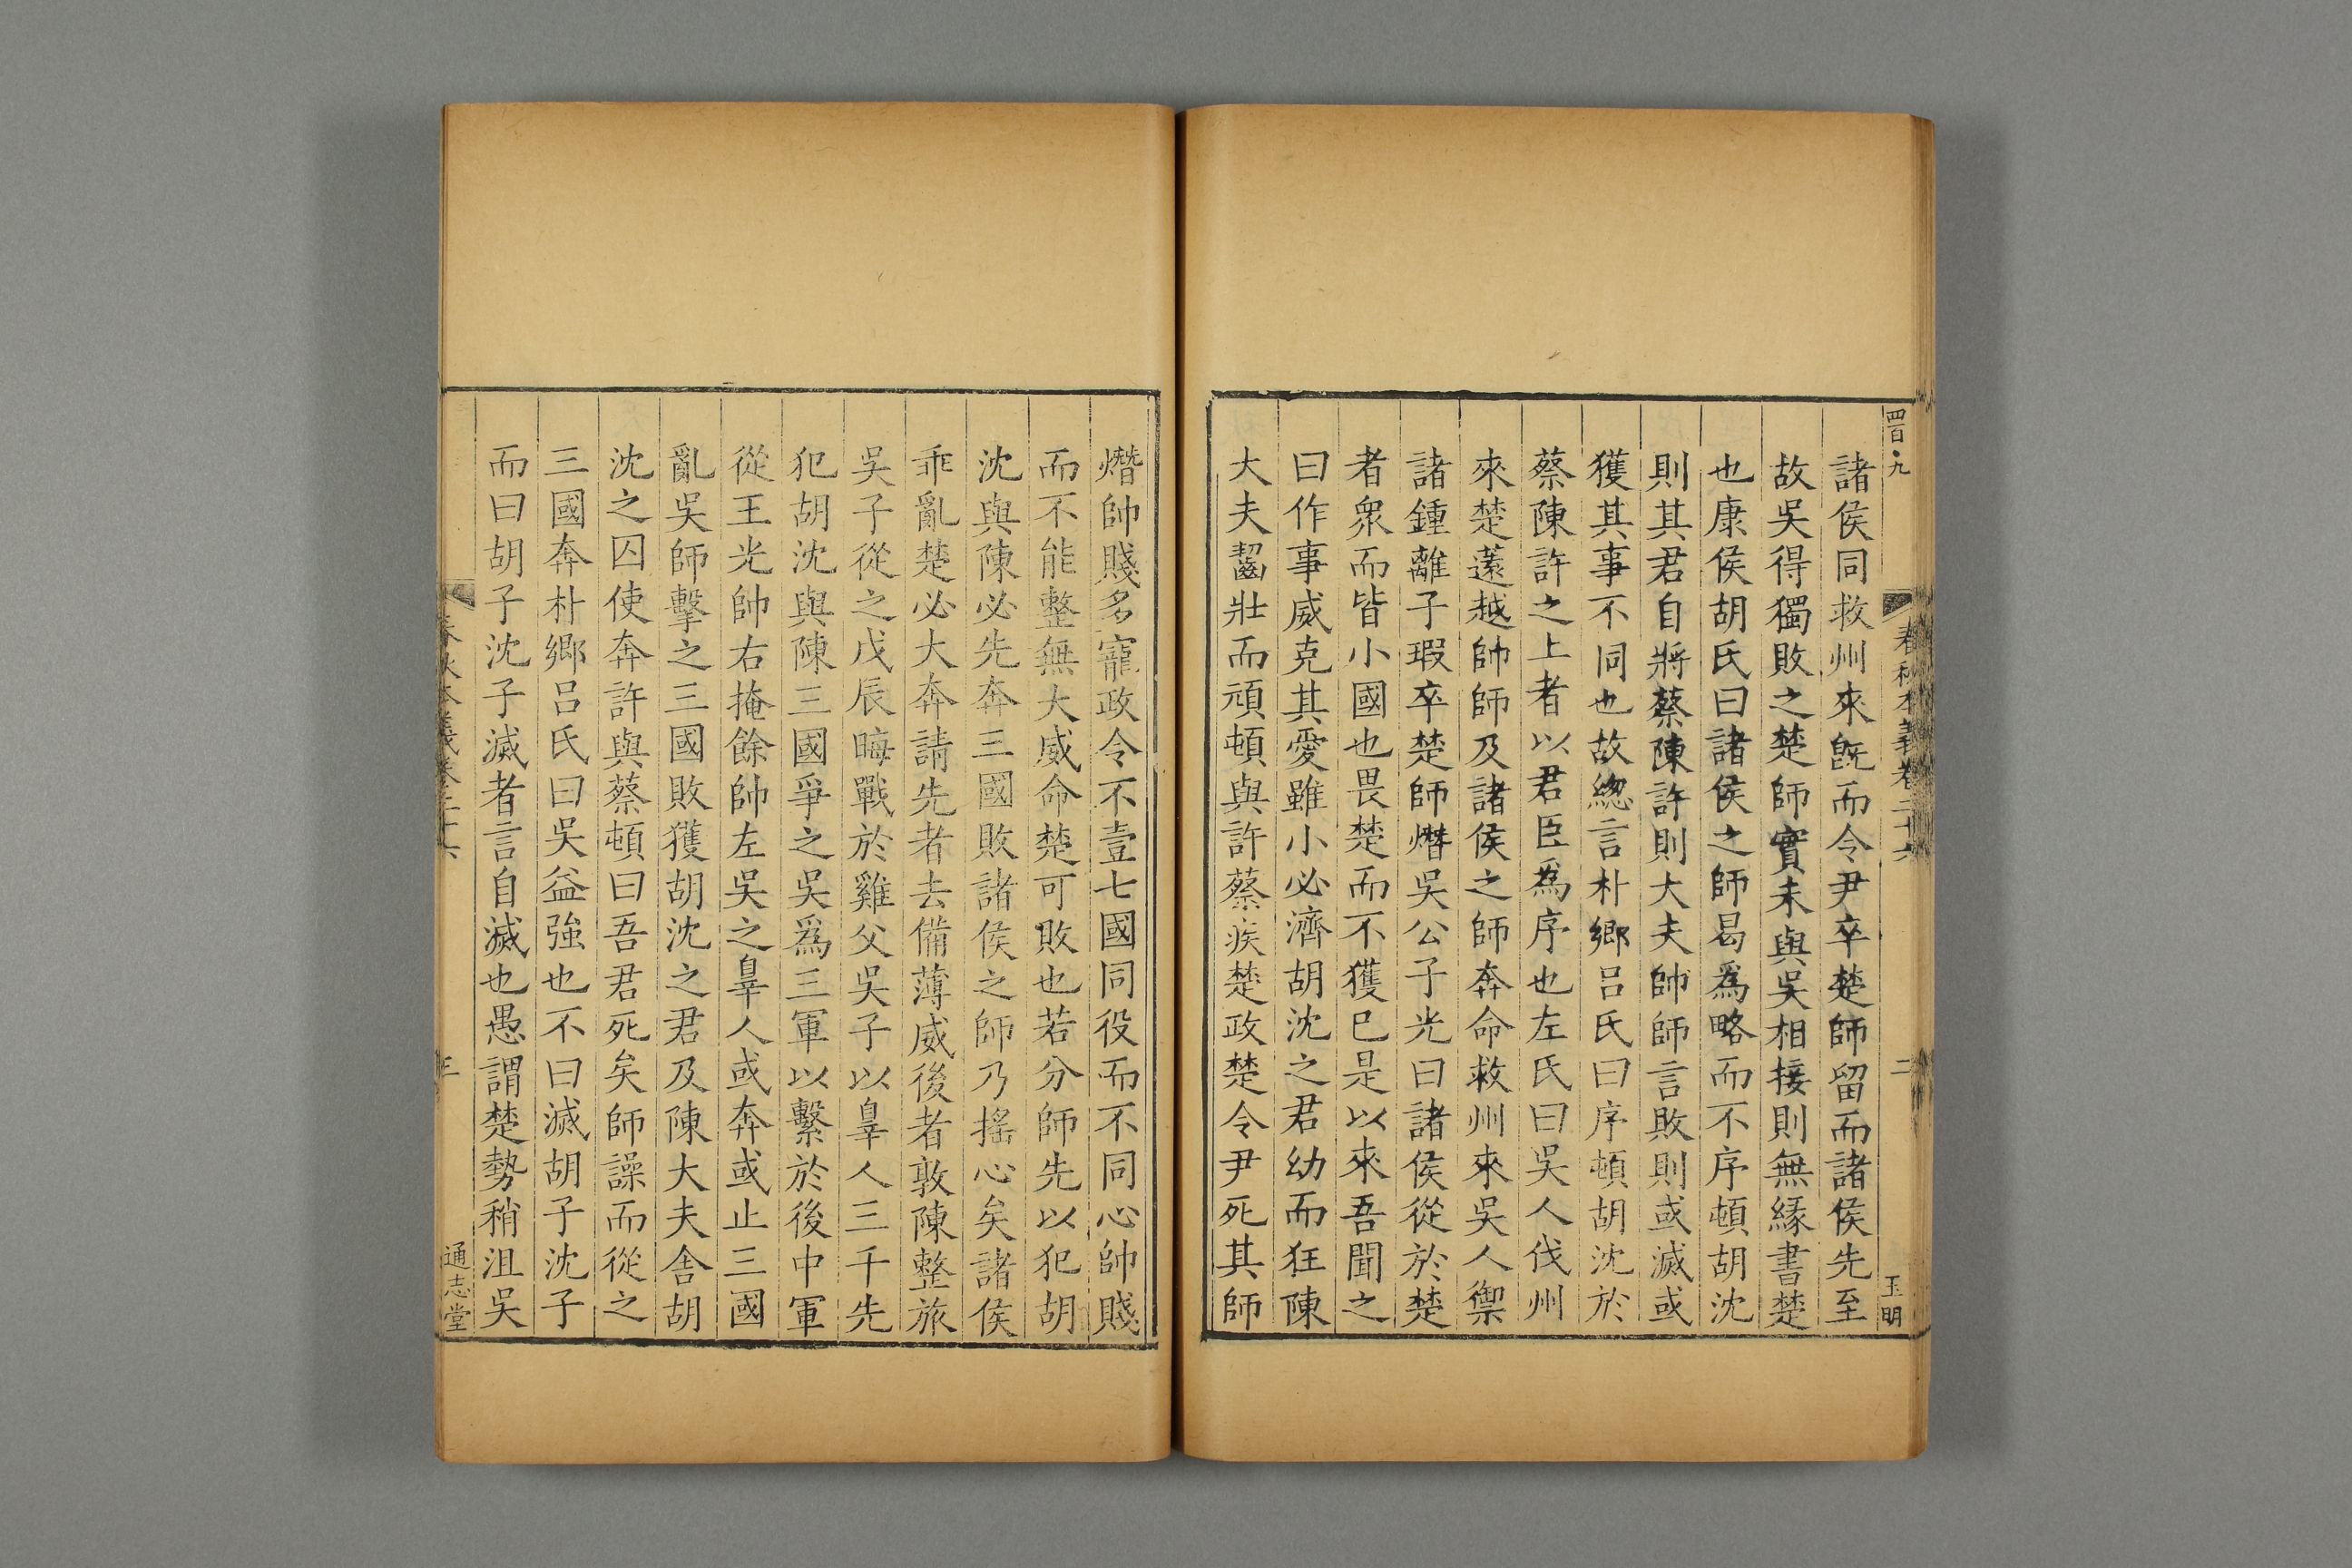 四百·九
春秋本義卷二十六
二
玉明
諸侯同救州來旣而令尹卒楚師留而諸侯先至
故吳得獨敗之楚師實未與吳相接則無緣書楚
也康侯胡氏曰諸侯之師曷爲略而不序頓胡沈
則其君自將蔡陳許則大夫帥師言敗則或滅或
獲其事不同也故緫言朴鄉呂氏曰序頓胡沈於
蔡陳許之上者以君臣爲序也左氏曰吳人伐州
來楚薳越帥師及諸侯之師奔命救州來吳人禦
諸鍾離子瑕卒楚師熸吳公子光曰諸侯從於楚
者衆而皆小國也畏楚而不獲已是以來吾聞之
曰作事威克其愛雖小必濟胡沈之君幼而狂陳
大夫齧壯而頑頓與許蔡疾楚政楚令尹死其師
熸帥賤多寵政令不壹七國同役而不同心帥賤
而不能整無大威命楚可敗也若分師先以犯胡
沈與陳必先奔三國敗諸侯之師乃搖心矣諸侯
乖亂楚必大奔請先者去備薄威後者敦陳整旅
吳子從之戊辰晦戰於雞父吳子以辠人三千先
犯胡沈與陳三國爭之吳爲三軍以繫於後中軍
從王光帥右掩餘帥左吳之辠人或奔或止三國
亂吳師擊之三國敗獲胡沈之君及陳大夫舍胡
沈之囚使奔許與蔡頓曰吾君死矣師譟而從之
三國奔朴鄉呂氏曰吳益強也不曰滅胡子沈子
而曰胡子沈子滅者言自滅也愚謂楚勢稍沮吳
春秋本義卷二十六
三
通志堂